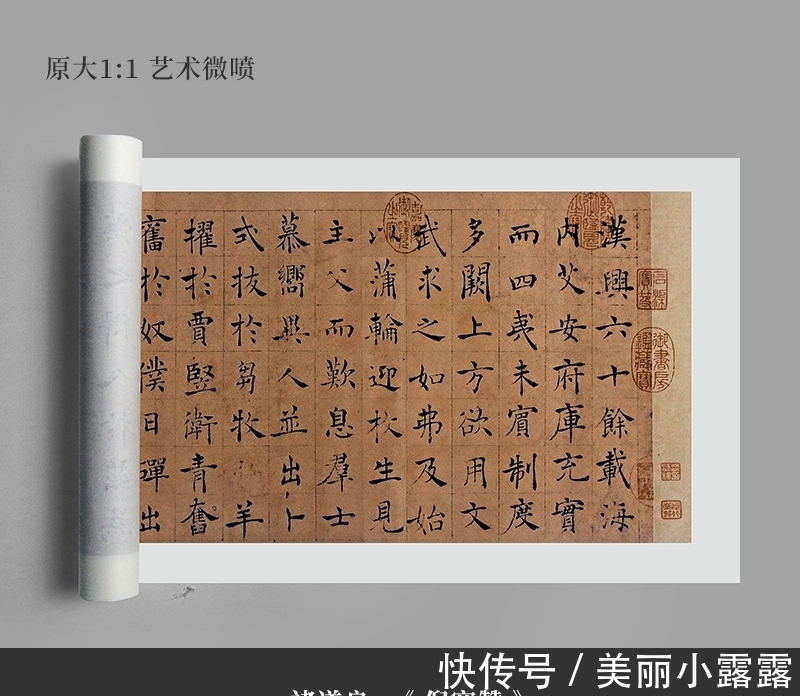 原大1:1 艺术微喷
漢興六十餘載海
內艾安府庫充實
而四夷未賓制度
多闕上方欲用文
武求之如弗及始
以蒲輪迎枚生見
主父而歎息羣士
慕嚮異人並出卜
式拔於芻牧羊
擢於賈豎衛青奮
於奴僕日磾出
御書房鑑藏寶
快传号 / 美丽小露露